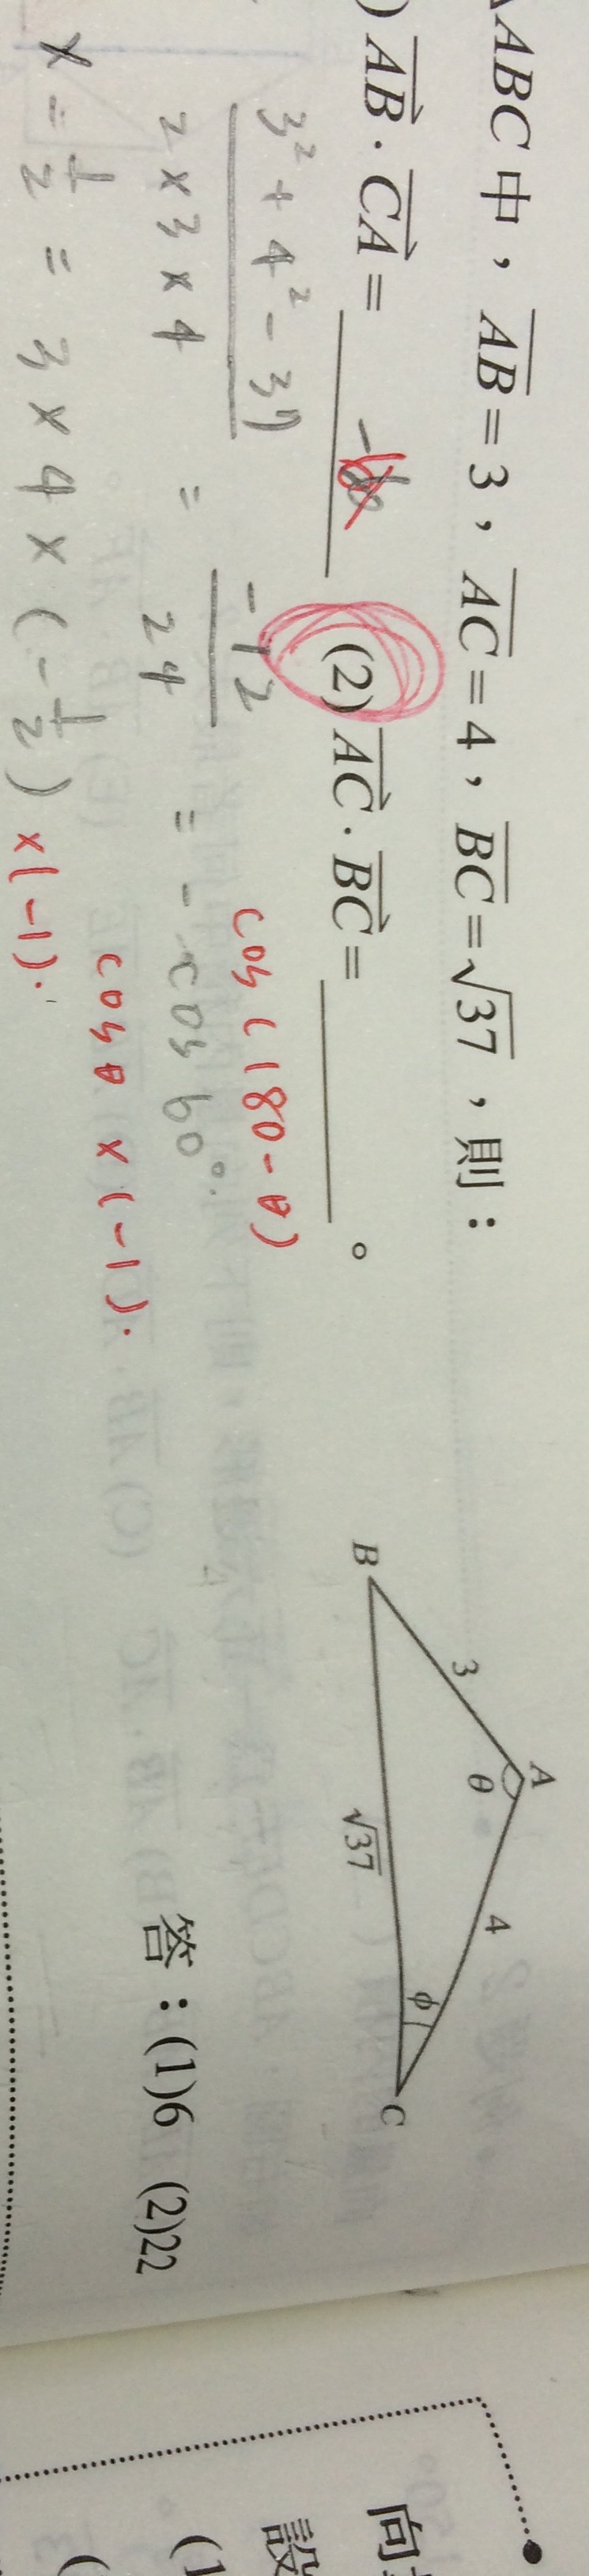 ABC 中，AB=3，AC=4，BC=√37，則：
) AB · CA = -6 (2) AC · BC = 。
3² + 4² - 37 / 2 × 3 × 4 = -12 / 24 = - cos 60°.
cos (180 - θ)
cos θ × (-1).
= 3 × 4 × (-1/2) × (-1).
A
B
C
3
4
√37
θ
φ
答：(1)6 (2)22
向
設
(1
(